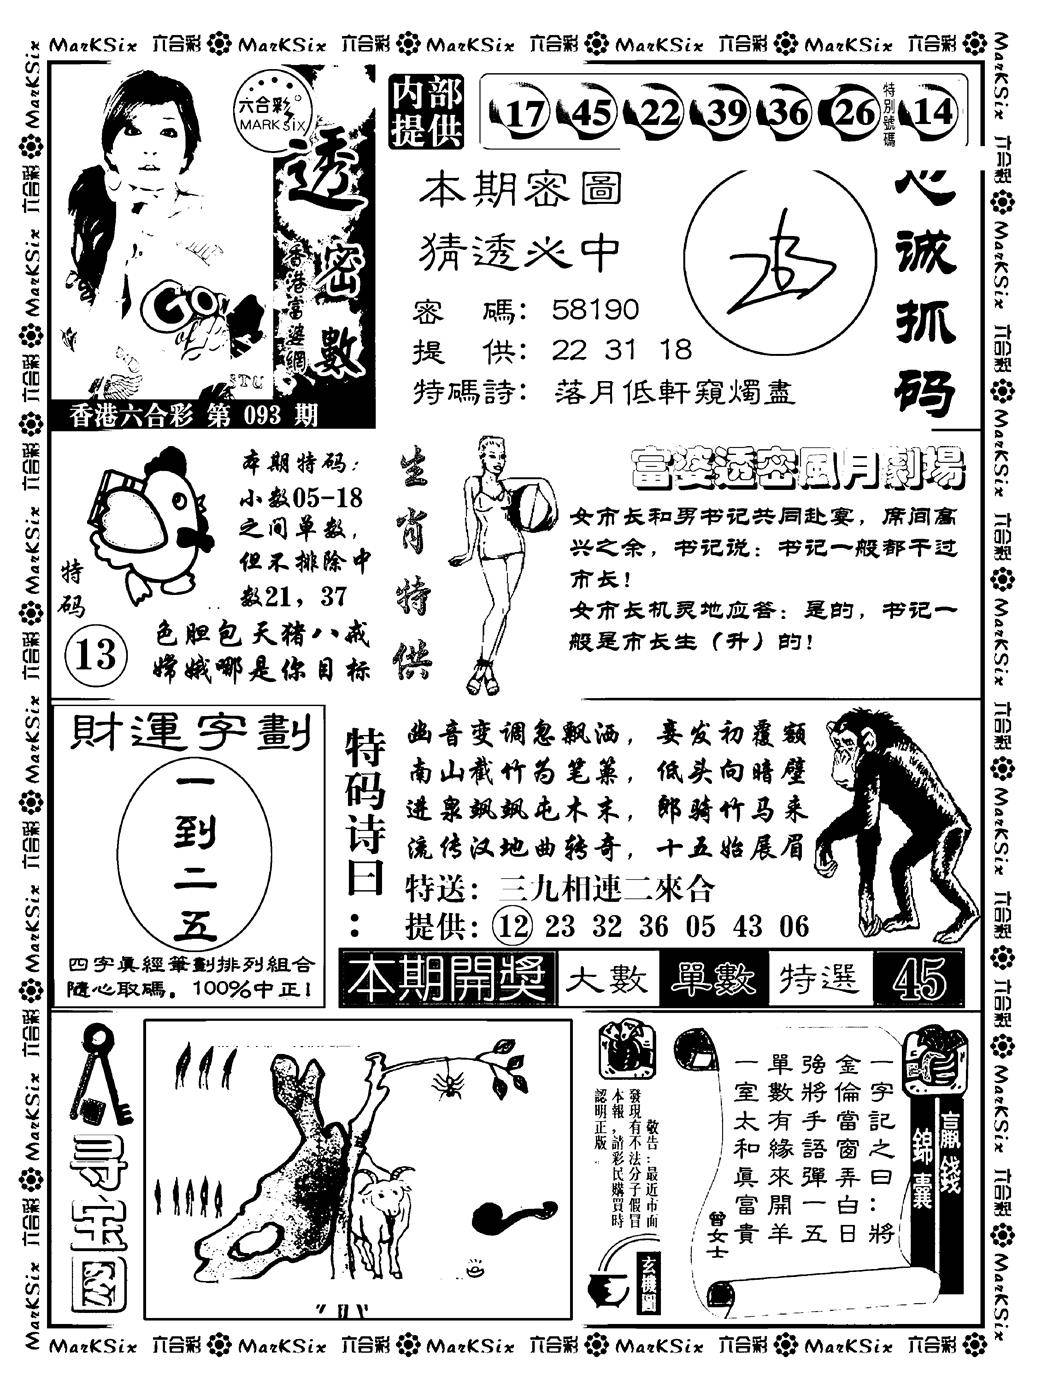 MarKSix 六合彩 MarKSix 六合彩 MarKSix 六合彩 MarKSix 六合彩 MarKSix 六合彩
六合彩
MARK SIX
透密數
香港富婆網
香港六合彩 第 093 期
内部
提供
17 45 22 39 36 26 特別號碼 14
本期密圖
猜透必中
密 碼: 58190
提 供: 22 31 18
特碼詩: 落月低軒窺燭盡
心诚抓码
本期特码:
小数05-18
之间单数,
但不排除中
数21, 37
特码
13
色胆包天猪八戒
嫦娥哪是你目标
生肖特供
富婆透密風月劇場
女市长和男书记共同赴宴, 席间高
兴之余, 书记说: 书记一般都干过
市长!
女市长机灵地应答: 是的, 书记一
般是市长生 (升) 的!
財運字劃
一
到
二
五
四字眞經筆劃排列組合
隨心取碼, 100%中正!
特码诗曰:
幽音变调忽飘洒, 妾发初覆额
南山截竹为笔篥, 低头向暗壁
进泉飒飒屯木末, 郎骑竹马来
流传汉地曲转奇, 十五始展眉
特送: 三九相連二來合
提供: 12 23 32 36 05 43 06
本期開獎 大數 單數 特選 45
寻宝图
敬告:最近市面
發現有不法分子假冒
本報,請彩民購買時
認明正版
玄機圖
贏錢
錦囊
一字記之曰:將
金倫當窗弄白日
強將手語彈一五
單數有緣來開羊
一室太和眞富貴
曾女士
MarKSix 六合彩 MarKSix 六合彩 MarKSix 六合彩 MarKSix 六合彩 MarKSix 六合彩